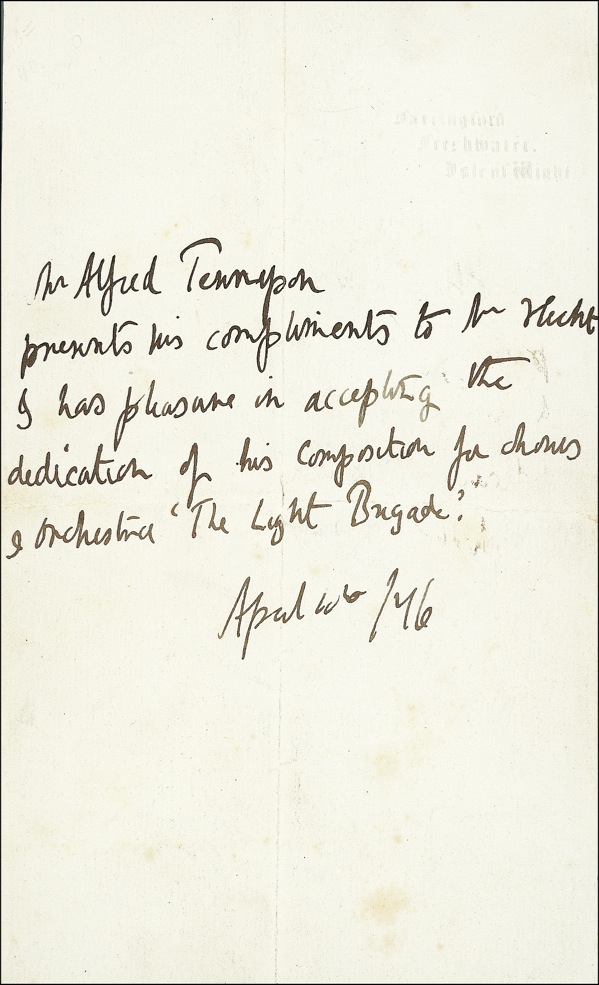 Farringford
Freshwater.
Isle of Wight
Mr Alfred Tennyson
presents his compliments to Mr Hecht
& has pleasure in accepting the
dedication of his composition for chorus
& orchestra 'The Light Brigade'.
April /76